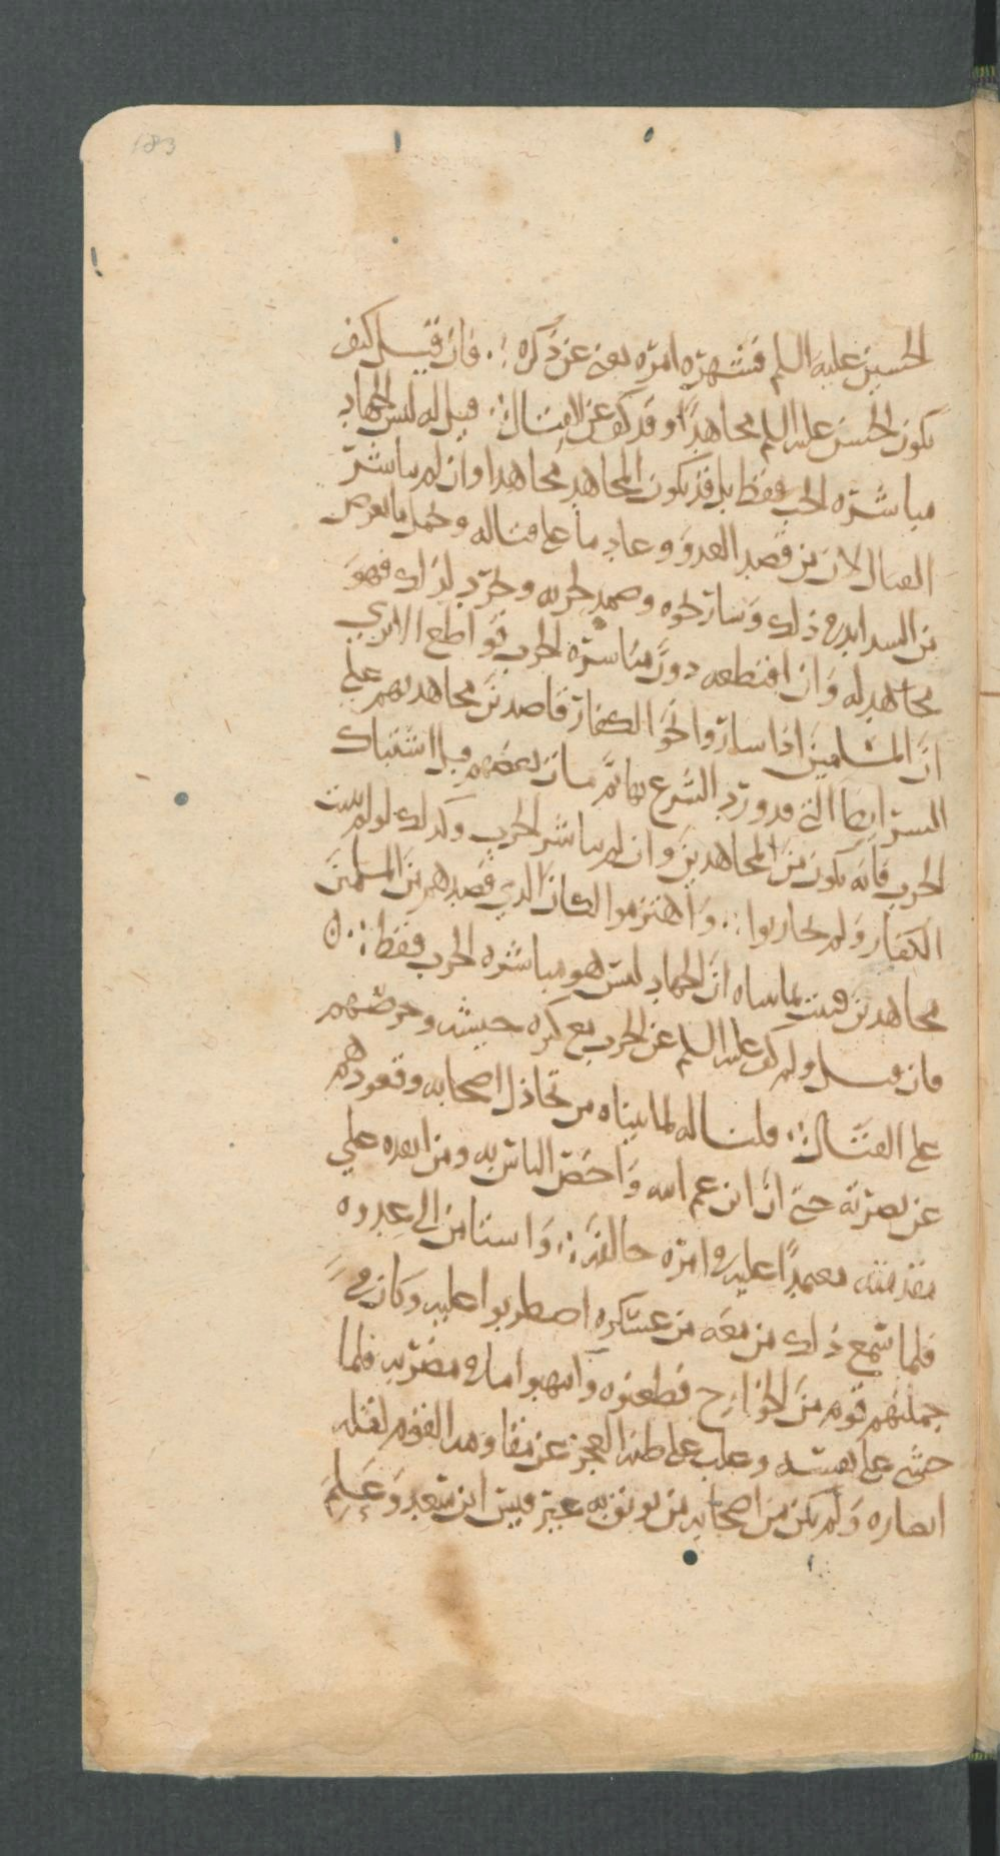 183
الحسين عليه السلم فشهرة امره يغني عن ذكره ∴ فان قيل كيف
يكون الحسن عليه السلم مجاهدًا وقد كف عن الاقتتال ∴ قيل له ليس الجهاد
مباشرة الحرب فقط بل قد يكون المجاهد مجاهدا وان لم يباشر
القتال لان من قصد العدو وعاد ما على قتاله وحمل ما العرض
من السد ابد في ذلك وسار نحوه وصمد لحربه وتجرد لذلك فهو
مجاهد له وان اقتطعه دون مباشرة الحرب قواطع الا تري
ان المسلمين اذا ساروا نحو الكفار قاصدين مجاهدتهم على
السرايط التي قد ورد الشرع بها ثم مات بعضهم قبل اشتباك
الحرب فانه يكون من المجاهدين وان لم يباشر الحرب وكذلك لو لم يثبت
الكفار ولم يحاربوا ∴ وانهزموا لكان الذي قصدهم من المسلمين
مجاهدين فثبت بما بيناه ان الجهاد ليس هو مباشرة الحرب فقط ∴
فان قيل ولم كف عليه السلم عن الحرب مع كثرة جيشه وحرضهم
على القتال ∴ قلنا له لما بيناه من تخاذل اصحابه وقعودهم
عن نصرته حتى ان ابن عم ابيه واخص الناس به ومن انفذه على
مقدمته معتمدًا عليه في امره خالفه ∴ واستامن الى عدوه
فلما سمع ذلك من معه من عسكره اضطربوا عليه وكان في
جملتهم قوم من الخوارج فطعنوه وانتهبوا ما في مضربه فلما
خشي على نفسه وغلب على ظنه العجز عن مقاومه القوم لقلة
انصاره ولم يكن من اصحابه من يوثق به غير قيس ابن سعد وعلم